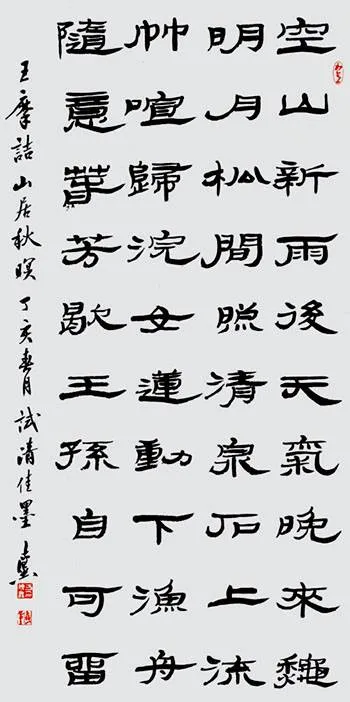 空山新雨後天氣晚來龝
明月松間照清泉石上流
竹喧歸浣女蓮動下漁舟
隨意萅芳歇王孫自可留
王摩詰山居秋暝丁亥春月試清佳墨